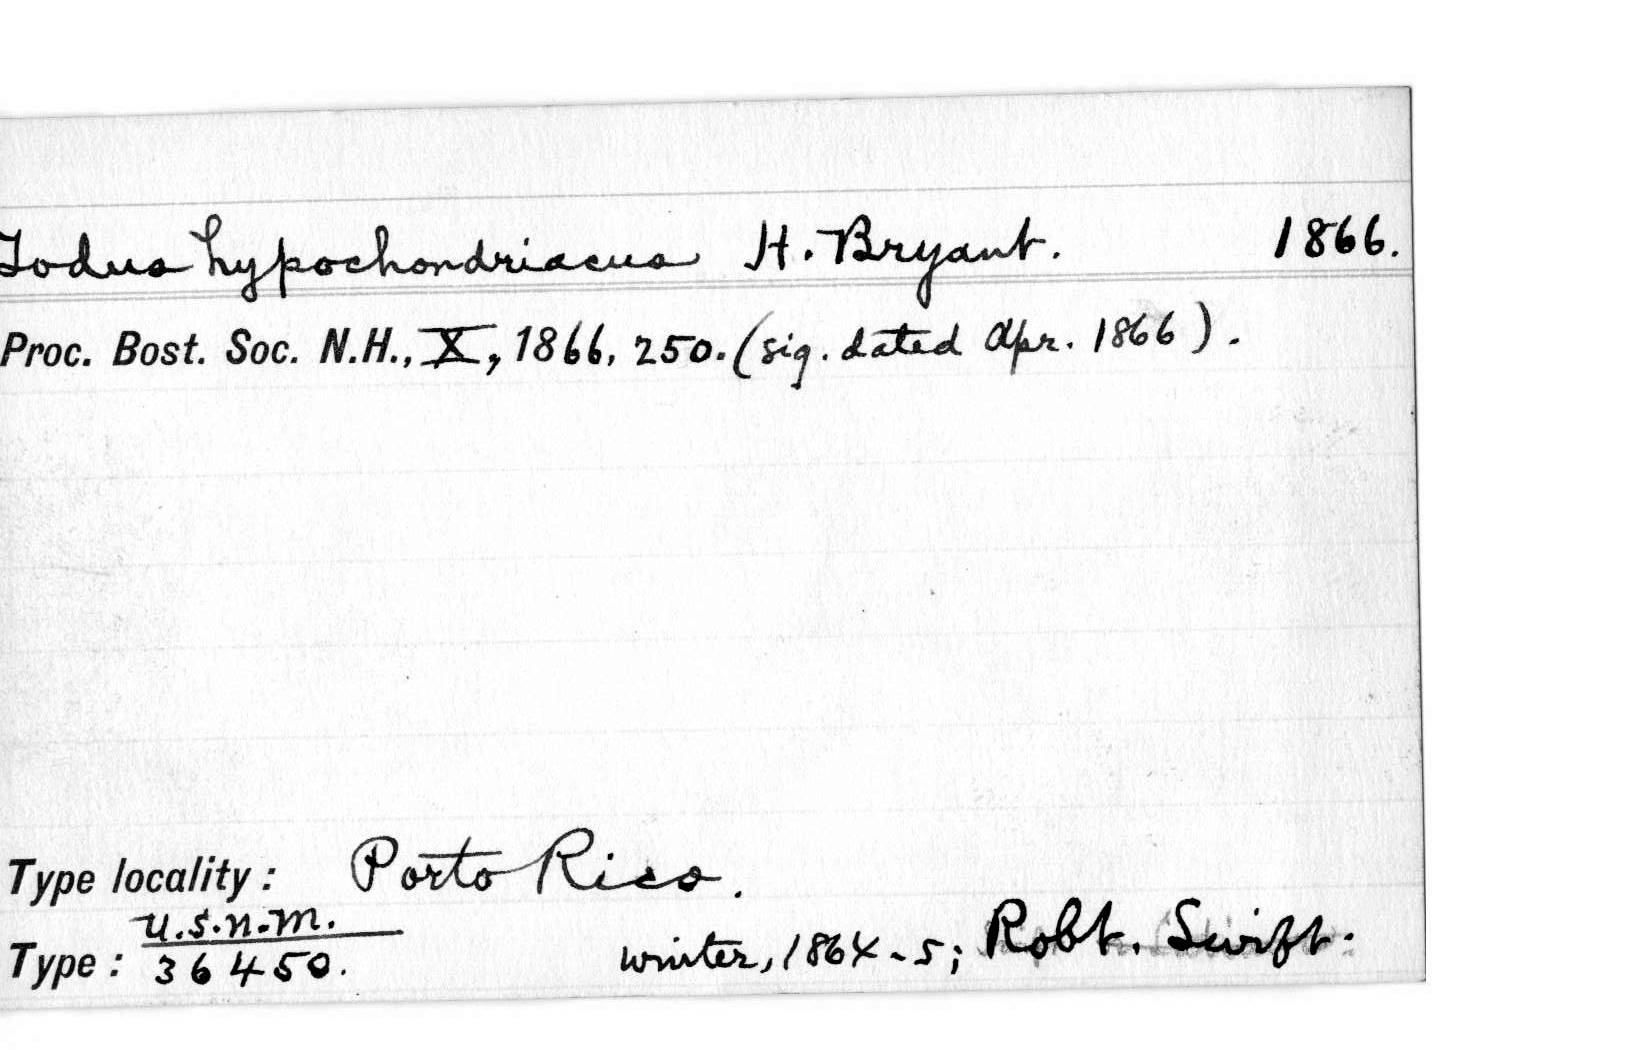 Todus hypochondriacus H. Bryant. 1866.
Proc. Bost. Soc. N.H., X, 1866, 250. (sig. dated Apr. 1866).
Type locality: Porto Rico.
U.S.N.M.
Type: 36450. winter, 1864-5; Robt. Swift.